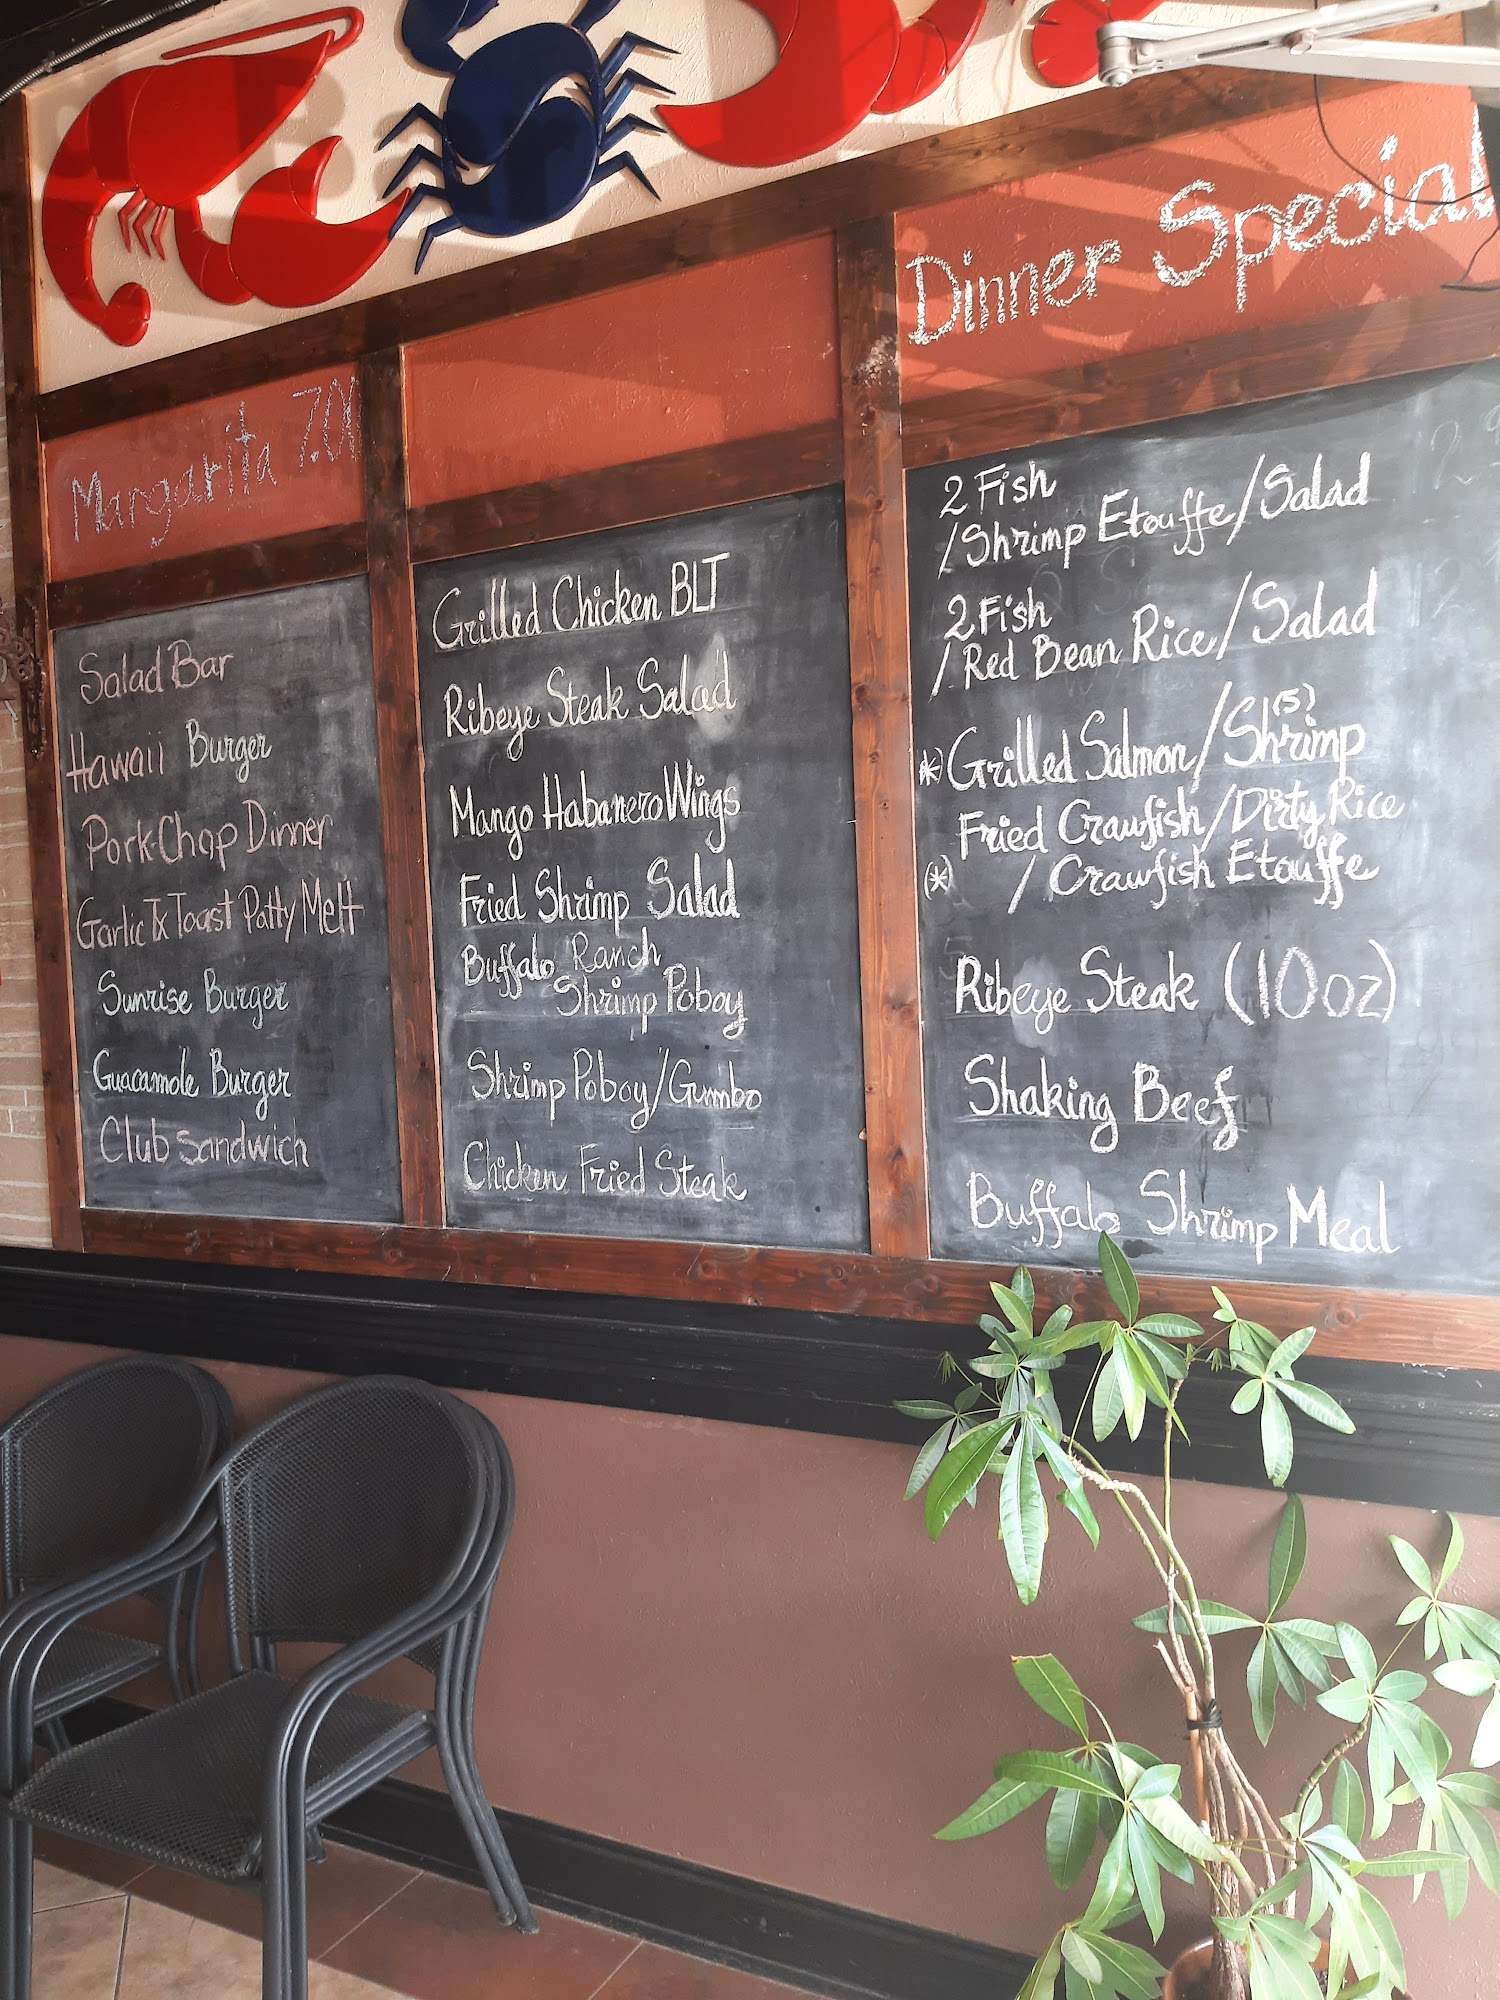 Margarita 7.00
Salad Bar
Hawaii Burger
Pork Chop Dinner
Garlic Tx Toast Patty Melt
Sunrise Burger
Guacamole Burger
Club Sandwich
Grilled Chicken BLT
Ribeye Steak Salad
Mango Habanero Wings
Fried Shrimp Salad
Buffalo Ranch
Shrimp Poboy
Shrimp Poboy/Gumbo
Chicken Fried Steak
Dinner Special
2 Fish
/Shrimp Etouffe/Salad
2 Fish
/Red Bean Rice/Salad
(5)
(*) Grilled Salmon/Shrimp
Fried Crawfish/Dirty Rice
(*) / Crawfish Etouffe
Ribeye Steak (10oz)
Shaking Beef
Buffalo Shrimp Meal